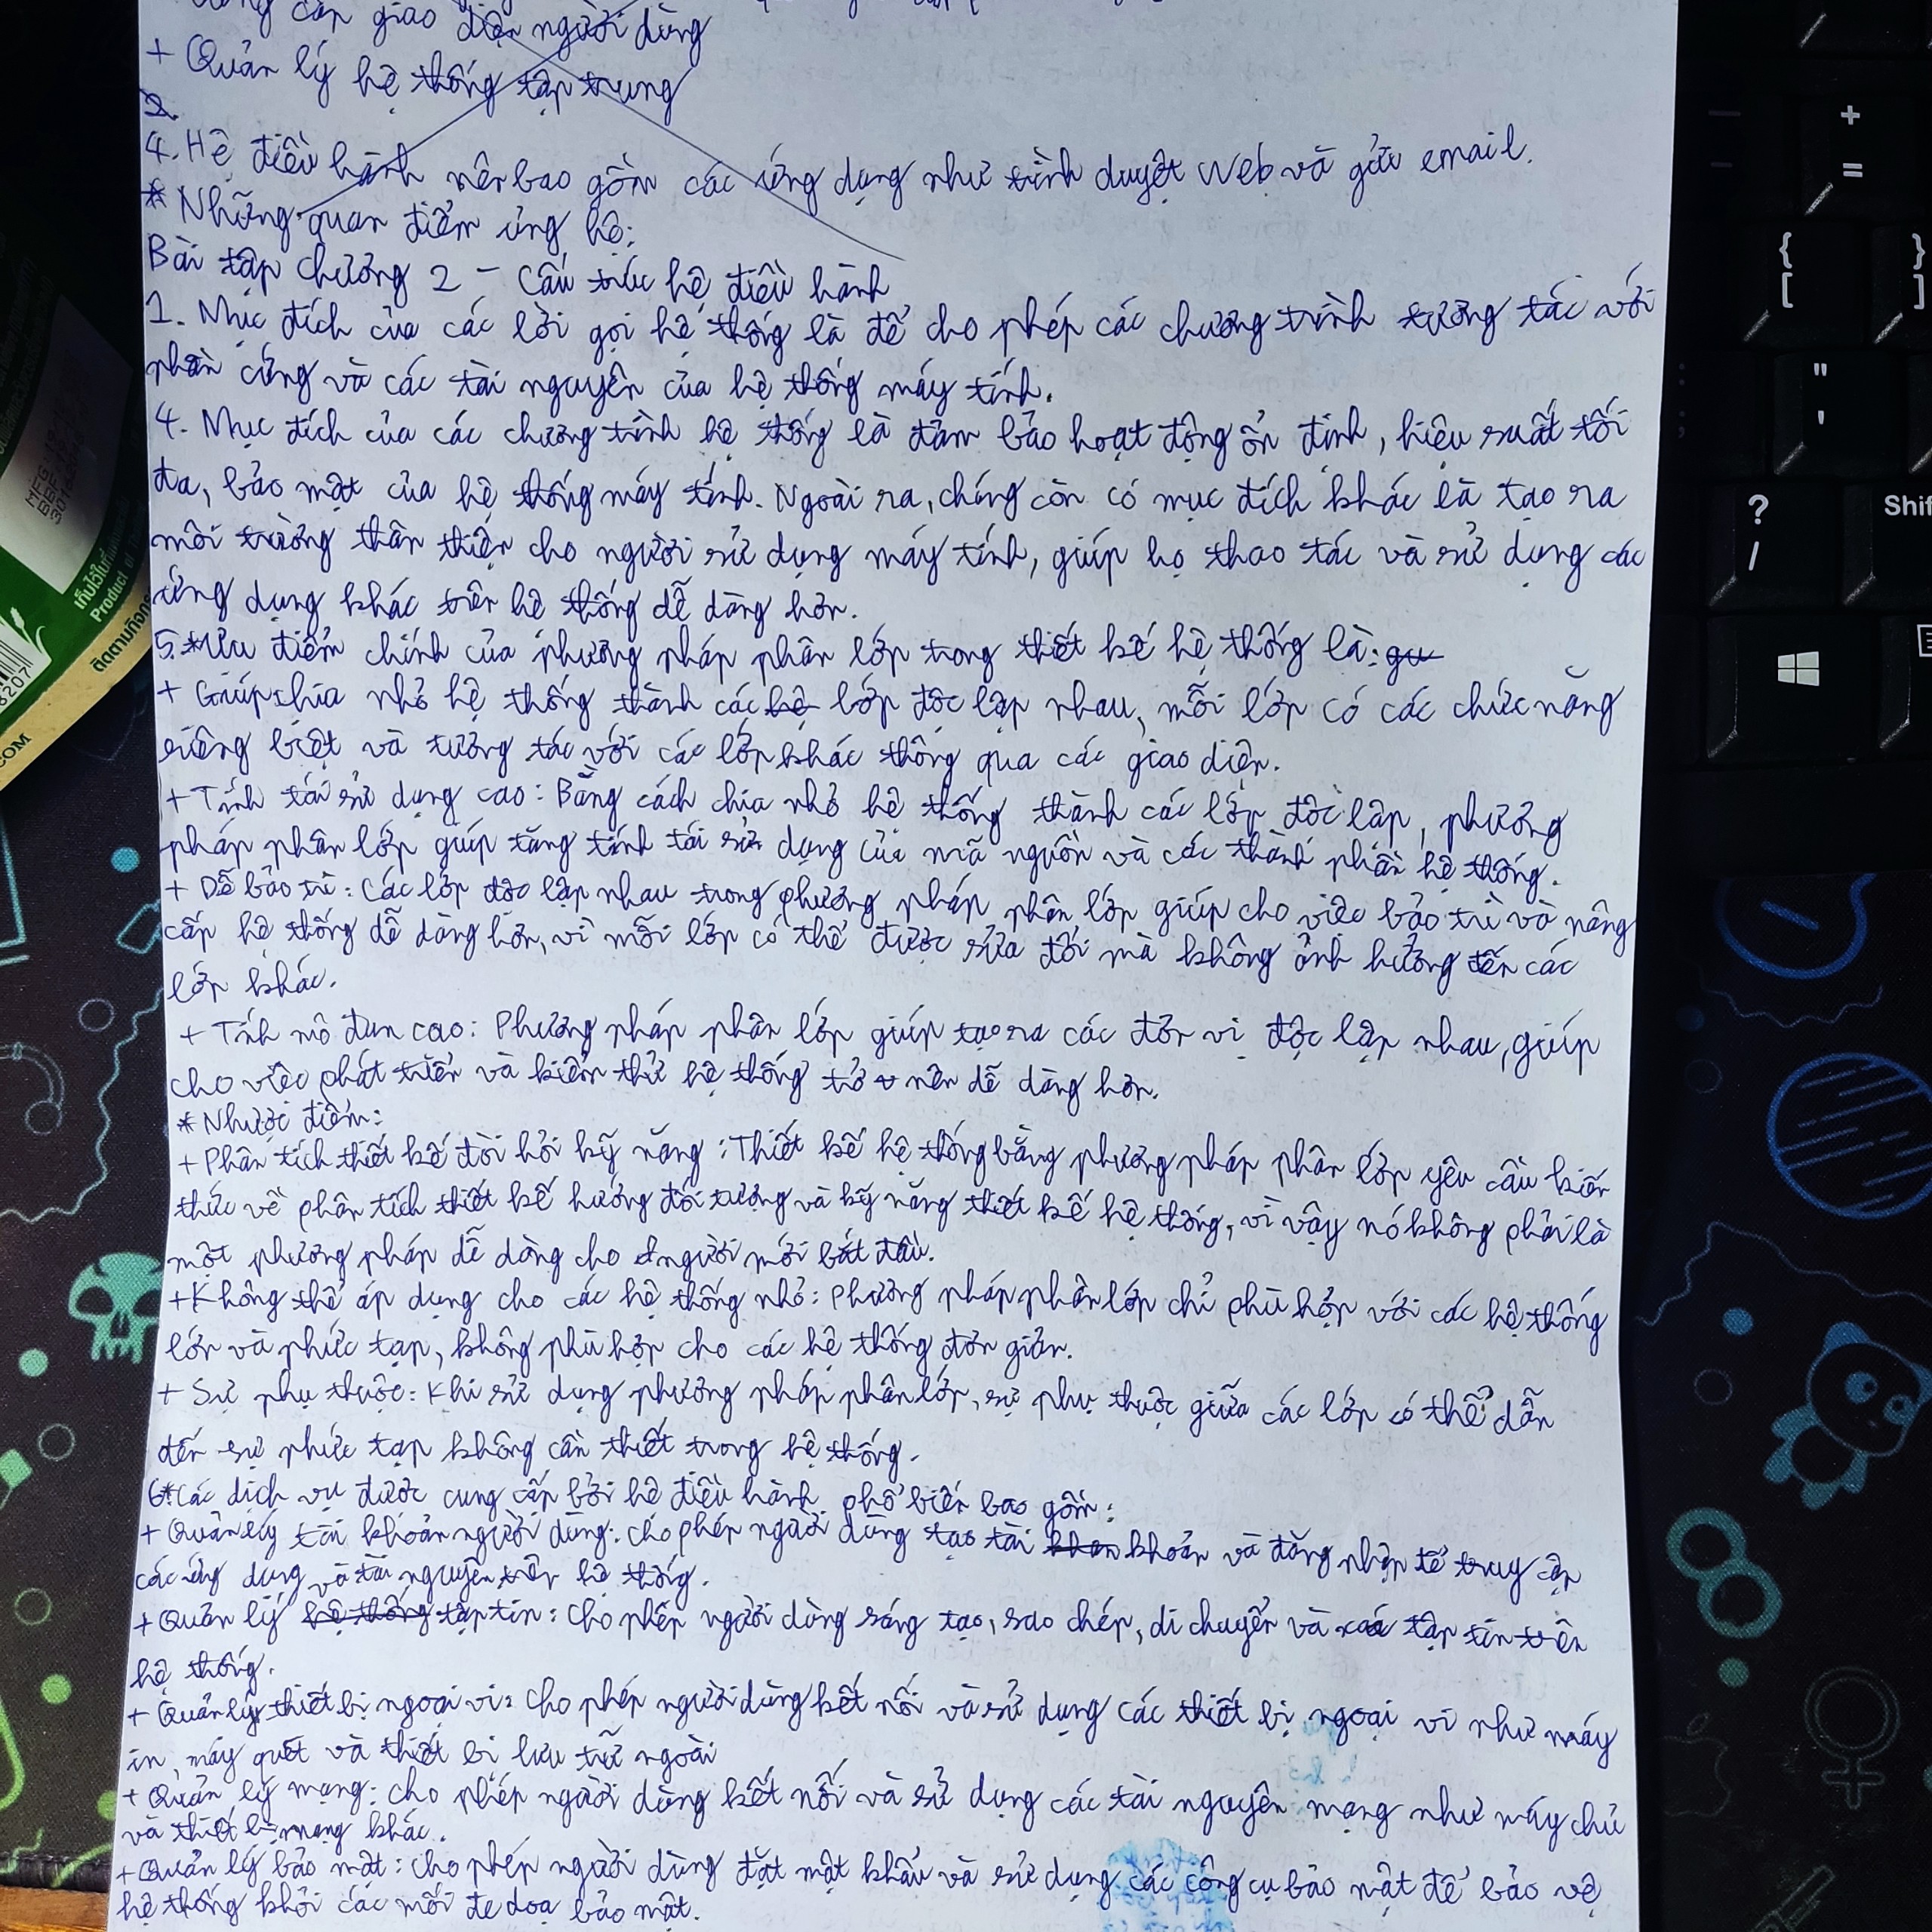 cấp giao diện người dùng
+ Quản lý hệ thống tập trung
2.
4. Hệ điều hành nên bao gồm các ứng dụng như trình duyệt Web và gửi email.
* Những quan điểm ủng hộ:
Bài tập chương 2 - Cấu trúc hệ điều hành
1. Mục đích của các lời gọi hệ thống là để cho phép các chương trình tương tác với
phần cứng và các tài nguyên của hệ thống máy tính.
4. Mục đích của các chương trình hệ thống là đảm bảo hoạt động ổn định, hiệu suất tối
đa, bảo mật của hệ thống máy tính. Ngoài ra, chúng còn có mục đích khác là tạo ra
môi trường thân thiện cho người sử dụng máy tính, giúp họ thao tác và sử dụng các
ứng dụng khác trên hệ thống dễ dàng hơn.
5.*Ưu điểm chính của phương pháp phân lớp trong thiết kế hệ thống là:
+ Giúp chia nhỏ hệ thống thành các lớp độc lập nhau, mỗi lớp có các chức năng
riêng biệt và tương tác với các lớp khác thông qua các giao diện.
+ Tính tái sử dụng cao: Bằng cách chia nhỏ hệ thống thành các lớp độc lập, phương
pháp phân lớp giúp tăng tính tái sử dụng của mã nguồn và các thành phần hệ thống.
+ Dễ bảo trì: Các lớp độc lập nhau trong phương pháp phân lớp giúp cho việc bảo trì và nâng
cấp hệ thống dễ dàng hơn, vì mỗi lớp có thể được sửa đổi mà không ảnh hưởng đến các
lớp khác.
+ Tính mô đun cao: Phương pháp phân lớp giúp tạo ra các đơn vị độc lập nhau, giúp
cho việc phát triển và kiểm thử hệ thống trở nên dễ dàng hơn.
* Nhược điểm:
+ Phân tích thiết kế đòi hỏi kỹ năng: Thiết kế hệ thống bằng phương pháp phân lớp yêu cầu kiến
thức về phân tích thiết kế hướng đối tượng và kỹ năng thiết kế hệ thống, vì vậy nó không phải là
một phương pháp dễ dàng cho người mới bắt đầu.
+ Không thể áp dụng cho các hệ thống nhỏ: Phương pháp phân lớp chỉ phù hợp với các hệ thống
lớn và phức tạp, không phù hợp cho các hệ thống đơn giản.
+ Sự phụ thuộc: Khi sử dụng phương pháp phân lớp, sự phụ thuộc giữa các lớp có thể dẫn
đến sự phức tạp không cần thiết trong hệ thống.
6*.Các dịch vụ được cung cấp bởi hệ điều hành phổ biến bao gồm:
+ Quản lý tài khoản người dùng: cho phép người dùng tạo tài khoản và đăng nhập để truy cập
các ứng dụng và tài nguyên trên hệ thống.
+ Quản lý tập tin: Cho phép người dùng sáng tạo, sao chép, di chuyển và xoá tập tin trên
hệ thống.
+ Quản lý thiết bị ngoại vi: Cho phép người dùng kết nối và sử dụng các thiết bị ngoại vi như máy
in, máy quét và thiết bị lưu trữ ngoài
+ Quản lý mạng: cho phép người dùng kết nối và sử dụng các tài nguyên mạng như máy chủ
và thiết bị mạng khác.
+ Quản lý bảo mật: cho phép người dùng đặt mật khẩu và sử dụng các công cụ bảo mật để bảo vệ
hệ thống khỏi các mối đe doạ bảo mật.
+
=
{
[
}
]
"
'
?
/
Shif
MFG
Product of
6207
COM